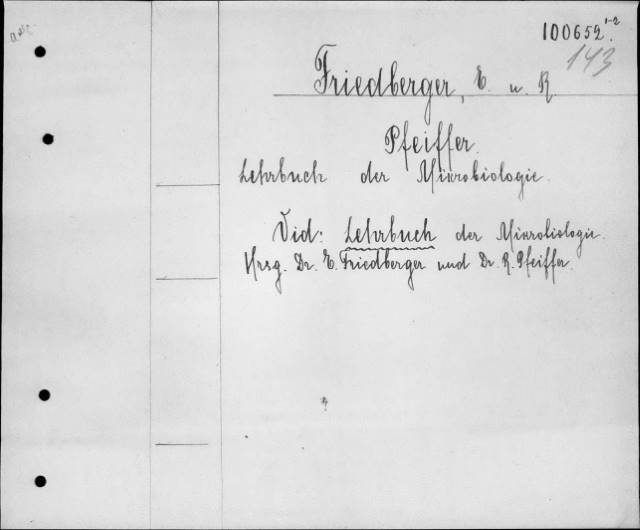 100652 1-2
143
Friedberger, E. u. R
Pfeiffer.
Lehrbuch der Mikrobiologie.
Vid: Lehrbuch der Mikrobiologie.
Hrsg. Dr. E. Friedberger und Dr. R. Pfeiffer.